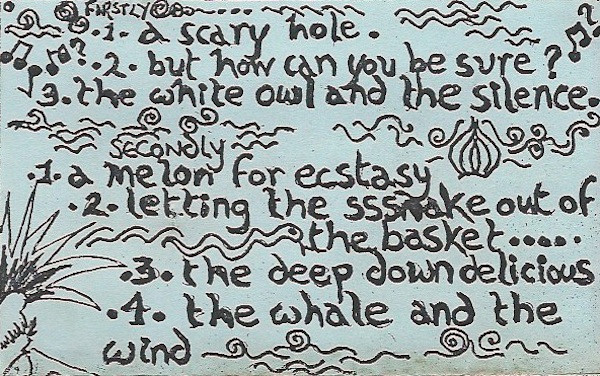 FIRSTLY.....
.1. a scary hole.
.2. but how can you be sure?
3. the white owl and the silence.
SECONDLY
.1. a melon for ecstasy
.2. letting the sssnake out of
the basket.....
.3. the deep down delicious
.4. the whale and the
wind